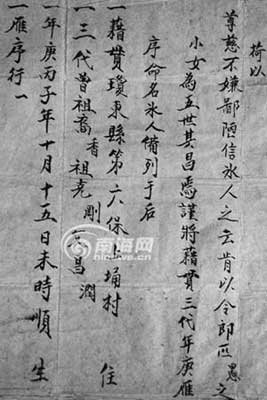 荷以
尊慈不嫌鄙陋信氷人之云肯以令郎匹愚之
小女為五世其昌焉謹將藉貫三代年庚雁
序命名氷人備列于后
一藉貫瓊東縣第六保埇村 住
一三代曾祖裔香 祖堯剛 父昌潤
一年庚丙子年十月十五日未時順 生
一雁序行一
南海网
www.hinews.cn